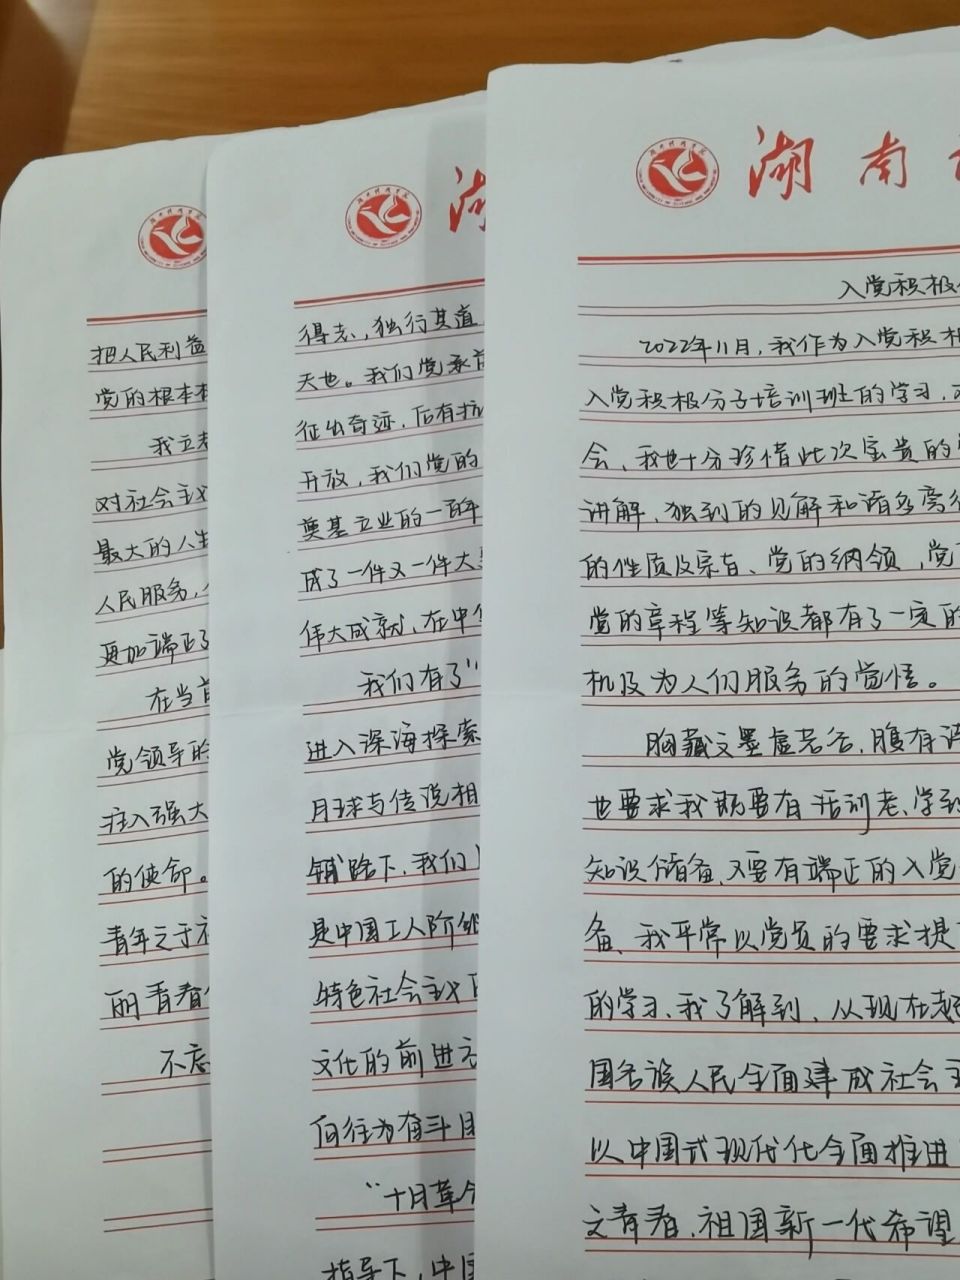 湖南
入党积极
2022年11月,我作为入党积极
入党积极分子培训班的学习,
会、我也十分珍惜此次宝贵的
讲解、独到的见解和诸多
的性质及宗旨、党的纲领,党
党的章程等知识都有了一定的
机及为人们服务的觉悟。
胸藏文墨虚若谷,腹有
也要求我既要有活到老、学到
知识储备,又要有端正的入党
备、我平常以党员的要求提
的学习、我了解到、从现在起
国各族人民全面建成社会主
以中国式现代化全面推进
之青春,祖国新一代希望
得志,独行其道
天也。我们党承前
征出奇迹,后有抗
开放,我们党的
奠基立业的一百年
成了一件又一件大
伟大成就、在中华
我们有了“
进入深海探索
月球与传说相
铺路下、我们
是中国工人阶级
特色社会主义
文化的前进方
向往为奋斗目
“十月革命
指导下,中国
把人民利益
党的根本
我立志
对社会主义
最大的人生
人民服务,
更加端正了
在当前
党领导的
注入强大
的使命。
青年之于
丽青春
不忘